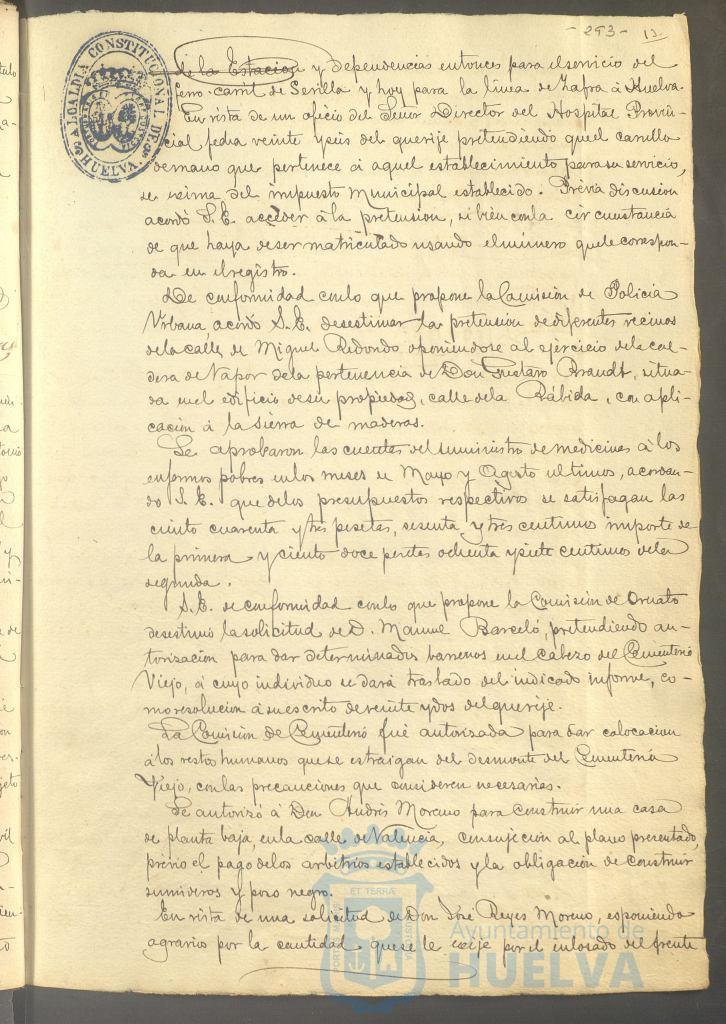 - 293 - 13.
ALCALDIA CONSTITUCIONAL DE HUELVA
de la Estacion y dependencias entonces para el servicio del
ferro-carril de Sevilla y hoy para la linea de Zafra á Huelva.
En vista de un oficio del Señor Director del Hospital Provin-
cial fecha veinte y seis del que rije pretendiendo que el carrillo
de mano que pertenece á aquel establecimiento para su servicio,
se exima del impuesto Municipal establecido. Prévia discusion
acordó S.E. acceder á la pretension, si bien con la circunstancia
de que haya de ser matriculado usando el número que le correspon-
da en el registro.
De conformidad con lo que propone la Comisión de Policia
Urbana, acordó S.E. desestimar la pretension de diferentes vecinos
de la calle de Miguel Redondo oponiendose al ejercicio de la cal-
dera de vapor de la pertenencia de Don Gustavo Brandt, situa-
da en el edificio de su propiedad, calle de la Rábida, con apli-
cación á la sierra de maderas.
Se aprobaron las cuentas del suministro de medicinas á los
enfermos pobres en los meses de Mayo y Agosto ultimos, acordan-
do S.E. que de los presupuestos respectivos se satisfagan las
ciento cuarenta y tres pesetas, sesenta y tres centimos importe de
la primera y ciento doce pesetas ochenta y siete centimos de la
segunda.
S.E. de conformidad con lo que propone la Comisión de Ornato
desestimó la solicitud de D. Manuel Barceló, pretendiendo au-
torización para dar determinados barrenos en el Cabezo del Cementerio
Viejo, á cuyo individuo se dará traslado del indicado informe, co-
mo resolucion á su escrito de veinte y dos del que rije.
La Comisión de Cementerio fué autorizada para dar colocacion
á los restos humanos que se estraigan del desmonte del Cementerio
Viejo, con las precauciones que consideren necesarias.
Se autorizó á Don Andrés Moreno para construir una casa
de planta baja, en la calle de Valencia, con sujecion al plano presentado,
prévio el pago de los arbitrios establecidos y la obligación de construir
sumideros y pozo negro.
En vista de una solicitud de Don José Reyes Moreno, esponiendo
agravios por la cantidad que se le exije por el enlosado del frente
Ayuntamiento de
HUELVA